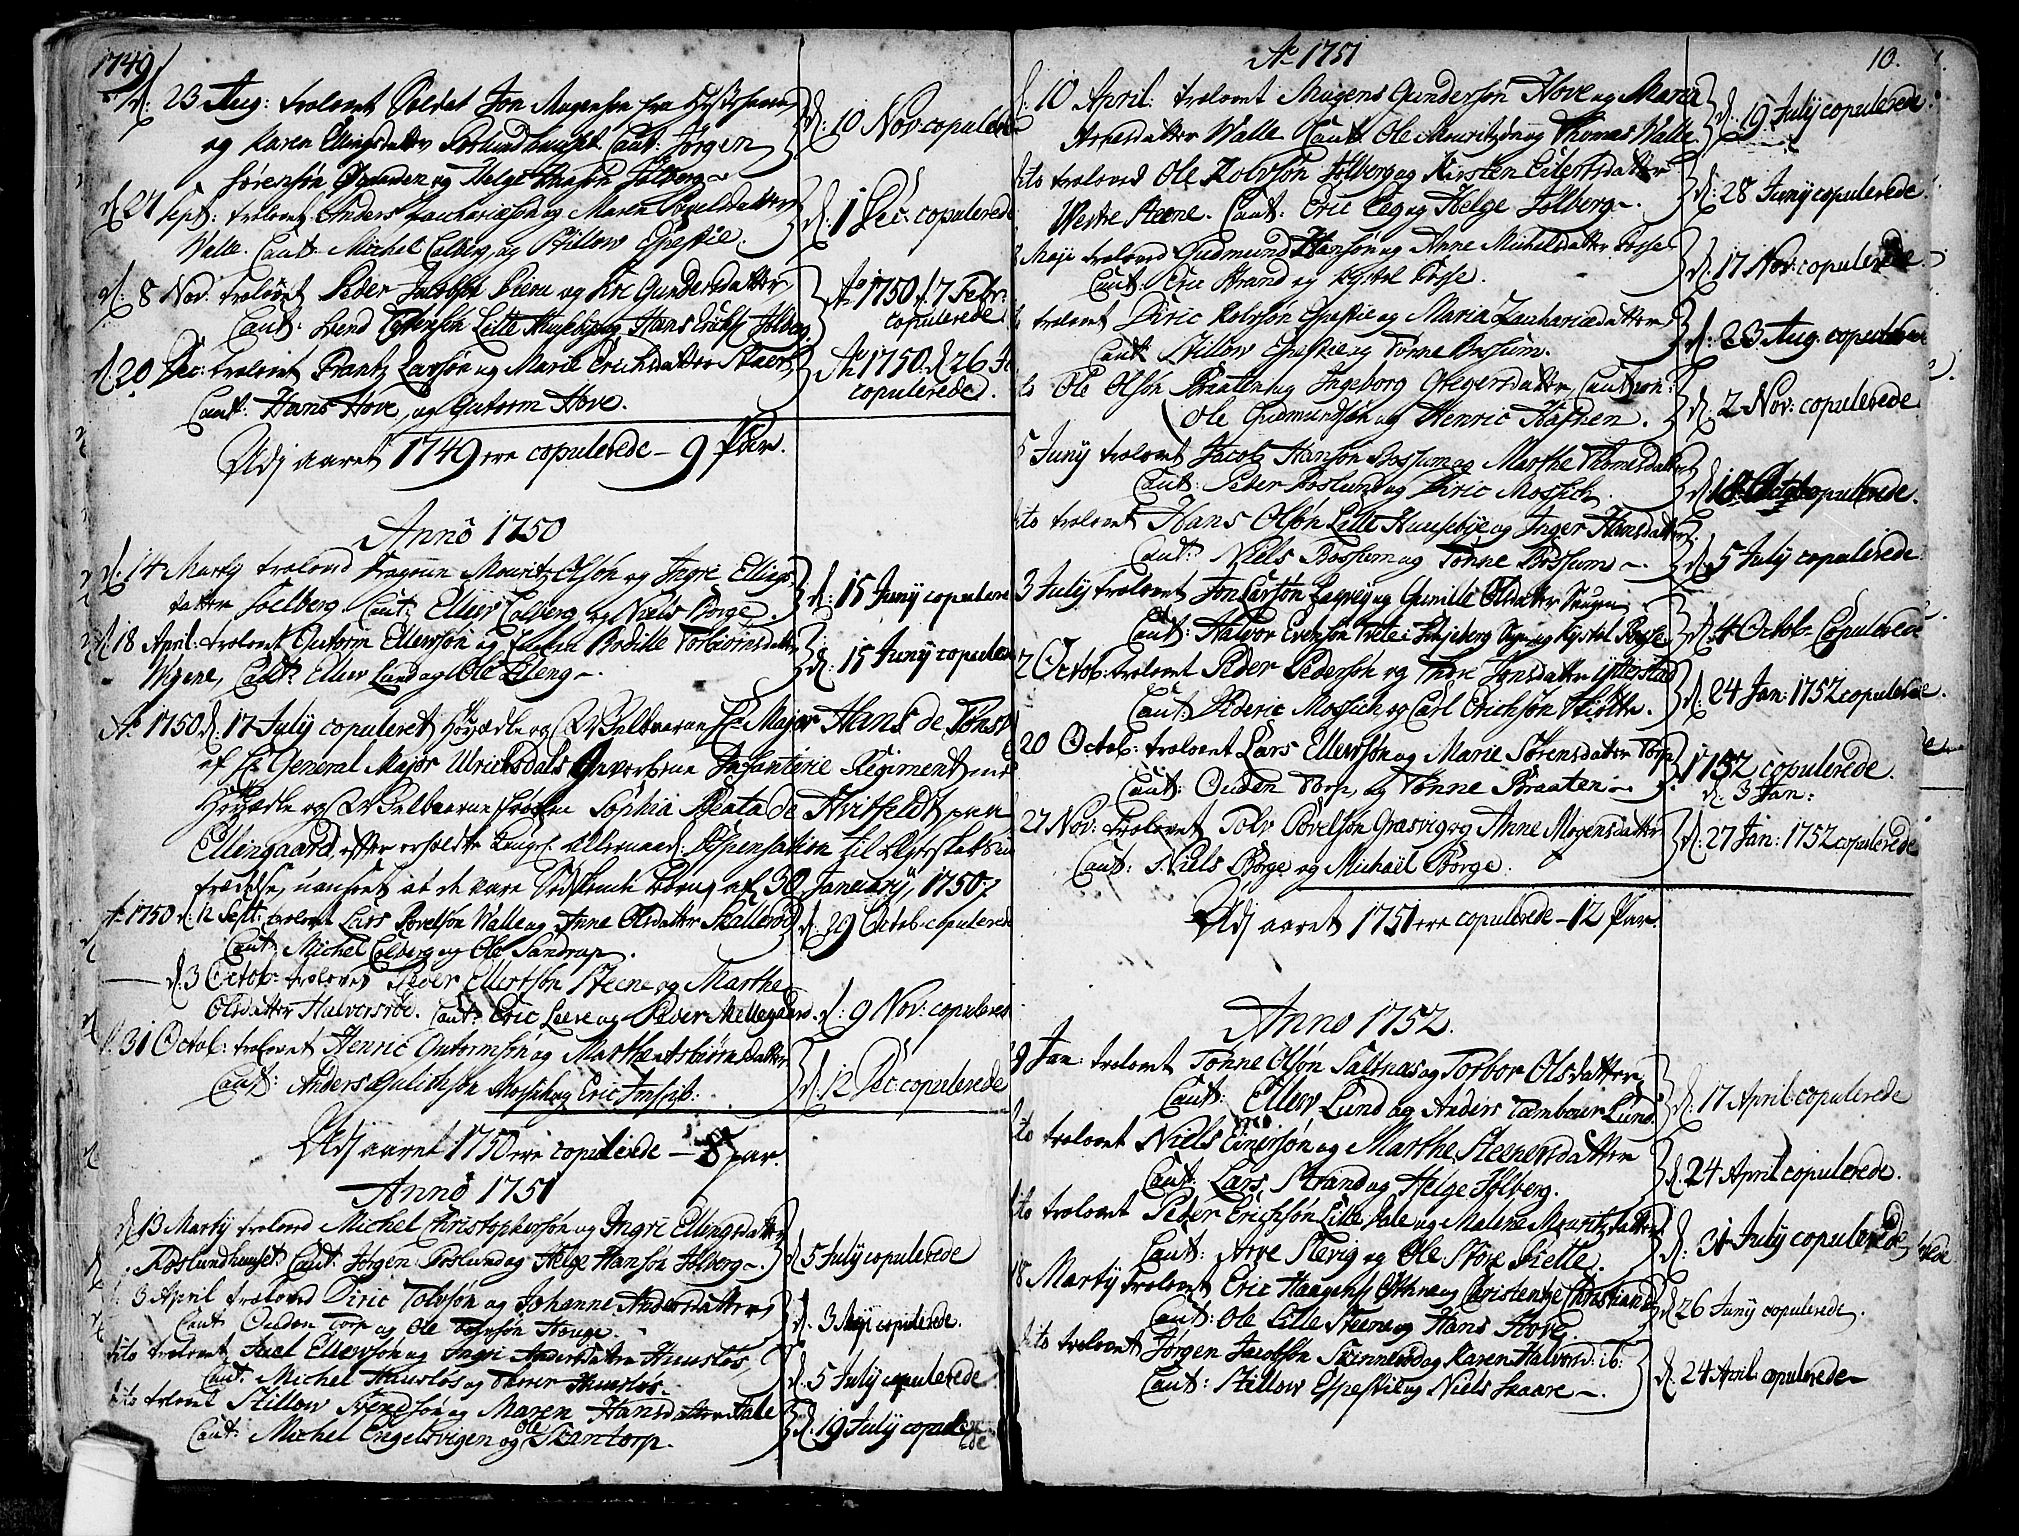 1749
d. 23 Aug: trolovet Soldat Jon Mogensön fra
og Karen Ellingsdatter Röslundhuuset Caut: Jörgen
Sörensön og Helge Hansön Jölberg
d. 10 Nov: copulerede
d. 27 Sept: trolovet Anders Zachariæsön og Maren Povelsdatter
Walle. Caut: Michel og Stillow Espeskie.
d. 1 Dec: copulerede
d: 8 Nov: trolovet Peder Jacobsön og Siri Gundersdatter
Caut: Svend Lille Huusebÿe og Hans Jölberg
Ao 1750 d. 7 Febr. copulerede
d. 20 Dec: trolovet Frantz Larsön og Marie Erichsdatter
Caut: Hans Hove, og Gutorm Hove.
Ao 1750. d. 26
copulerede.
Udj aaret 1749 ere copulerede - 9 Par.
Anno 1750
d. 14 Martij trolovet Dragoun Mouritz Olsön og Ingri Ellings
datter Soelberg Caut: Ellev og Niels Borge
d. 15 Junij copulerede
d. 18 April: trolovet Gutorm Ellevsön og Enken Bodille Torbiörnsdatter
Wigene, Caut: Ellev Lund og Ole Eleng
d. 15 Junij copulerede
Ao 1750 d. 17 Julij copuleret Höyædle og Velbaarne Hr Major Hans de
af Hr General Major Ulrichsdals Gevorbene Infanterie Regiment med
Höyædle og Velbaarne Fröken Sophia Beata de Hvitfeldt paa
Ellingaard, efter erholdte Kongl: allernaad: Dispensation til Ægteskabs
trædelse, uanseet at de vare Södskende Börn, af 30 January 1750.
Ao 1750 d. 12 Sept: trolovet Lars Povelsön Walle og Anne Olsdatter Skalleröd
Caut: Michel og Ole Sandrup.
d. 29 Octob: copulerede
d. 3 Octob: trolovet Peder Ellertsön Steene og Marthe
Olsdatter Halversröe. Caut: Eric og Peder Mellegaard.
d. 9 Nov: copulerede
d. 31 Octob: trolovet Henric Gutormsön og Marthe datter
Caut: Anders Gulichsön Mossich og Eric
d. 12 Dec: copulerede
Udj aaret 1750 ere copulerede - 8 par.
Anno 1751
d. 13 Martij trolovet Michel Christophersön og Ingri Ellingsdatter
Röslundhuuset Caut: Jörgen Röslund og Helge Hansön Jölberg
d. 5 Julij copulerede
d. 3 April trolovet Diric Tolvsön og Johanne Andersdatter
Caut: Ouden Torp og Ole Tolvsön Houge.
d. 3 Maji copulerede.
dito trolovet Juel Ellevsön og Ingri Andersdatter Huuslös
Caut: Michel Huuslös og Huuslös
d. 5 Julij copulerede
dito trolovet Stillow Svendsön og Maren Hansdatter Hale
Caut: Michel Engelsvigen og Ole Skantorp.
d. 19 Julij copulerede
Ao 1751
10.
d. 10 April: trolovet Mogens Gundersön Hove og Maren
Arnesdatter Walle Caut: Ole Mouritzön og Thomas Walle
d. 19 Julij copulerede
dito trolovet Ole Rolvsön Jölberg og Kirsten Eilertsdatter
Westre Steene. Caut: Eric Eeg og Helge Jölberg
d: 28 Junij copulerede
Maji trolovet Gudmund Hansön og Anne Michelsdatter Fosse
Caut: Eric Strand og Kystel Fosse.
d. 17 Nov: copulerede.
trolovet Diric Rolvsön Espeskie og Maria Zachariædatter
Caut: Stillow Espeskie og Tönne Bossum.
d. 23 Aug. copulerede
Ole Olsön Braaten og Ingeborg Gregersdatter, Caution:
Ole Gudmundsön og Henric Hafnen.
d. 2 Nov: copulerede
5 Junij trolovet Jacob Hansön Bossum og Marthe Thomesdatter
Caut: Peder Roslund og Diric Mossich.
copulerede.
dito trolovet Hans Olsön Lille Huusebÿe og Inger Hansdatter
Caut: Niels Bossum og Tönne Bossum
d. 5 July copulerede
3 Julij trolovet Jon Larsön og Gunille Olsdatter Haugen
Caut: Halvor Evensön Tvete i Skjeberg Sogn og Kystel Fosse.
d. 4 Octob: Copulerede
2 Octob: trolovet Peder Pedersön og Thore Jonsdatter Ytterstad
Caut: Dideric Mossich og Carl Erichsön Hiötte.
d. 24 Jan: 1752 copulerede.
20 Octob: trolovet Lars Ellevsön og Marie Sörensdatter Torp
Caut: Ouden Torp og Tönne Braaten
1752 copulerede.
d. 3 Jan:
27 Nov: trolovet Tolv Povelsön Græsvig og Anne Mogensdatter
Caut: Niels Borge og Michaël Borge.
d. 27 Jan: 1752 copulerede
Udj aaret 1751 ere copulerede - 12 Par.
Anno 1752.
9 Jan: trolovet Tönne Olsön Saltnæs og Torbor Olsdatter
Caut: Ellev Lund og Anders Tambour Lund.
d. 17 April: copulerede
dito trolovet Niels Einersön og Marthe Steenersdatter
Caut: Lars Strand og Helge Jölberg.
d. 24 April copulerede.
dito trolovet Peder Erichsön Lille Dale og Malene Mouritzdatter
Caut: Arve Slevig og Ole Store Kielle.
d: 31 Julij copulerede
18 Martij trolovet Eric Haagens Östhue og Christentze Christians
Caut: Ole Lille Steene og Hans Hove.
d: 26 Junij copulerede.
dito trolovet Jörgen Jacobsön Skinneröd og Karen Halvorsd: ib:
Caut: Stillow Espeskie og Niels Haare
d. 24 April copulerede